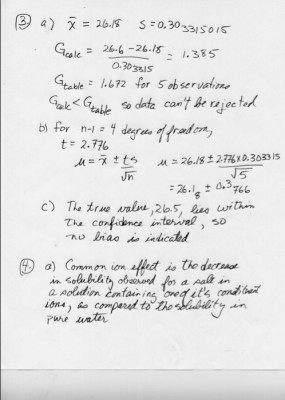 ③ a) x̄ = 26.18 S = 0.303315015
Gcalc = 26.6 - 26.18 / 0.303315 = 1.385
Gtable = 1.672 for 5 observations
Gcalc < Gtable so data can't be rejected
b) for n-1 = 4 degrees of freedom,
t = 2.776
μ = x̄ ± ts/√n μ = 26.18 ± 2.776x0.303315/√5
= 26.18 ± 0.3766
c) The true value, 26.5, lies within
the confidence interval, so
no bias is indicated
④ a) Common ion effect is the decrease
in solubility observed for a salt in
a solution containing one of it's constituent
ions, as compared to the solubility in
pure water